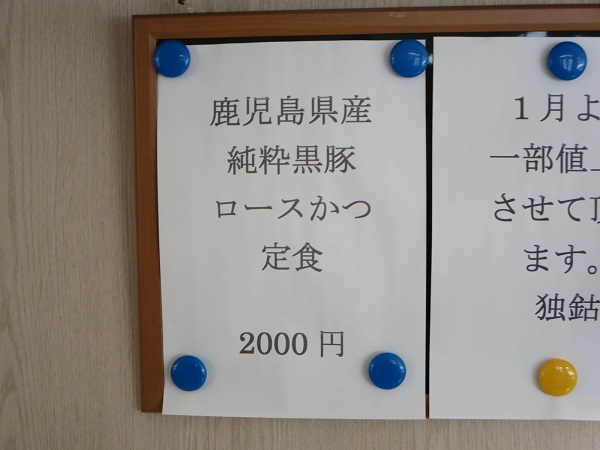 鹿児島県産
純粋黒豚
ロースかつ
定食
2000 円
1月よ
一部値
させて
ます。
独鈷